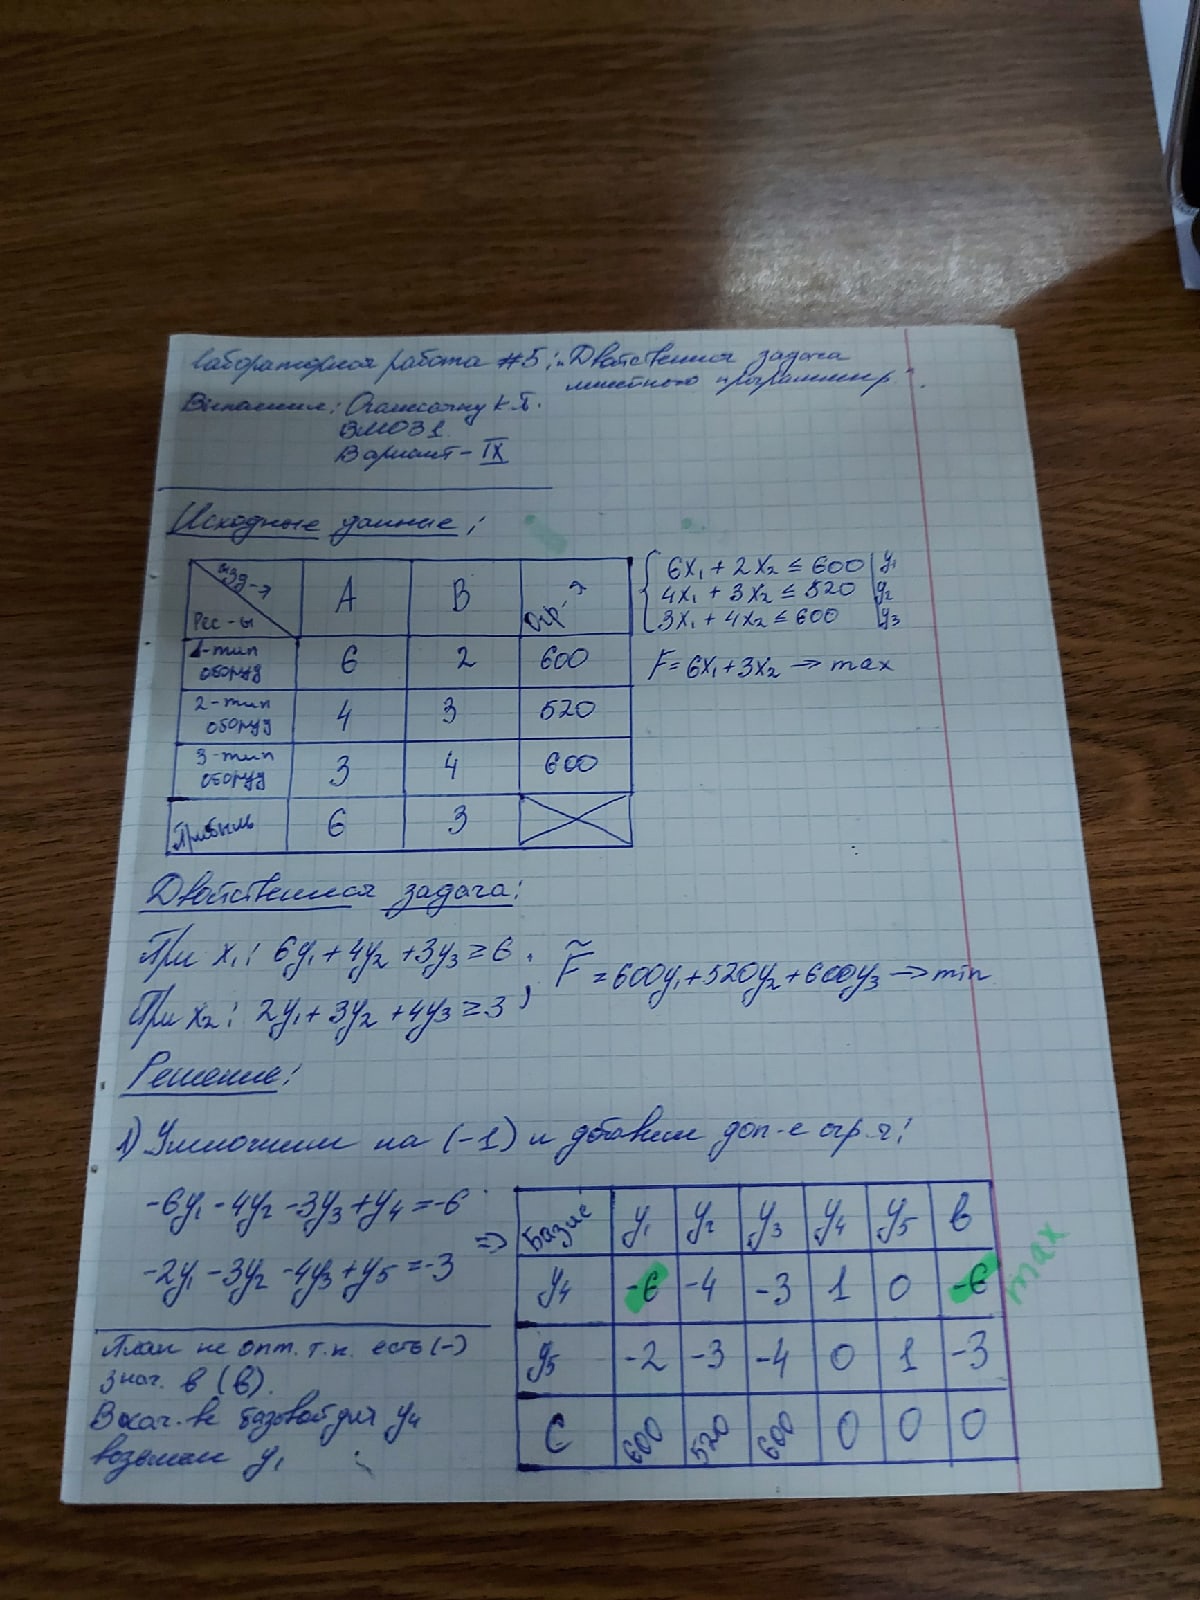 Лабораторная работа #5: „Двойственная задача
линейного программир."
Выполнил:
Вариант - IX
Исходные данные:
Изд-я Рес-ы A B Огр-я
1-тип оборуд 6 2 600
2-тип оборуд 4 3 520
3-тип оборуд 3 4 600
Прибыль 6 3
6x₁ + 2x₂ ≤ 600 | y₁
4x₁ + 3x₂ ≤ 520 | y₂
3x₁ + 4x₂ ≤ 600 | y₃
F = 6x₁ + 3x₂ → max
Двойственная задача:
При x₁: 6y₁ + 4y₂ + 3y₃ ≥ 6 ;
При x₂: 2y₁ + 3y₂ + 4y₃ ≥ 3 ;
F̃ = 600y₁ + 520y₂ + 600y₃ → min
Решение:
1) Умножим на (-1) и добавим доп-е огр-я:
-6y₁ - 4y₂ - 3y₃ + y₄ = -6
-2y₁ - 3y₂ - 4y₃ + y₅ = -3
=>
Базис y₁ y₂ y₃ y₄ y₅ в
y₄ -6 -4 -3 1 0 -6 max
y₅ -2 -3 -4 0 1 -3
C 600 520 600 0 0 0
План не опт. т.к. есть (-)
знач. в (в).
В кач-ве базовой для y₄
возьмем y₁